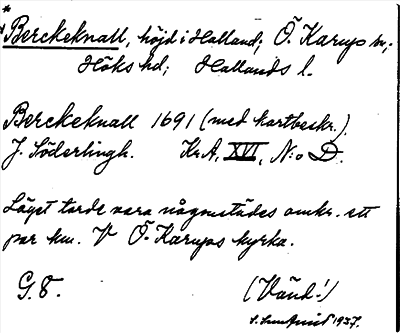 *
Berckeknall, höjd i Halland; Ö. Karups sn,
Höks hd; Hallands l.
Berckeknall 1691 (med kartbeskr.)
J. Söderlingh. Kr.A, XVI, N:o D.
Läget torde vara någonstädes omkr. ett
par km. V Ö. Karups kyrka.
G. 8.
(Vänd!)
S. 1937.